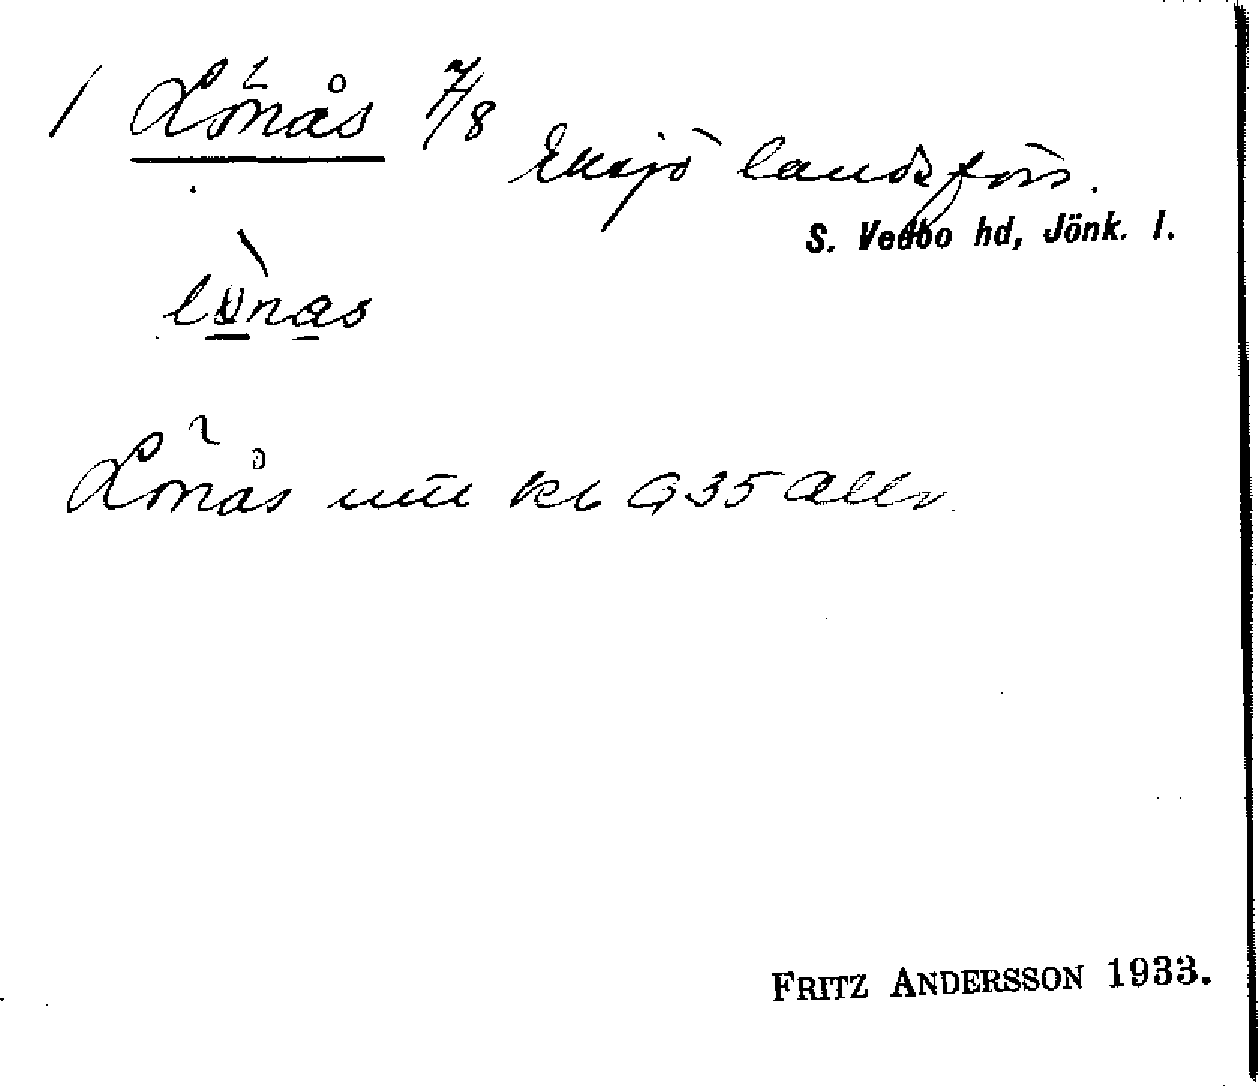 1 Lönås 7/8
Eksjö landsförs.
S. Vedbo hd, Jönk. l.
lönas
Lönås kb G 35 Allm
FRITZ ANDERSSON 1933.